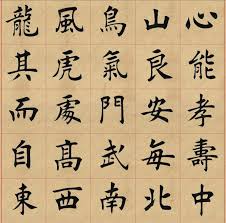 龍風鳥山心
其虎氣良能
而處門安孝
自髙武每壽
東西南北中